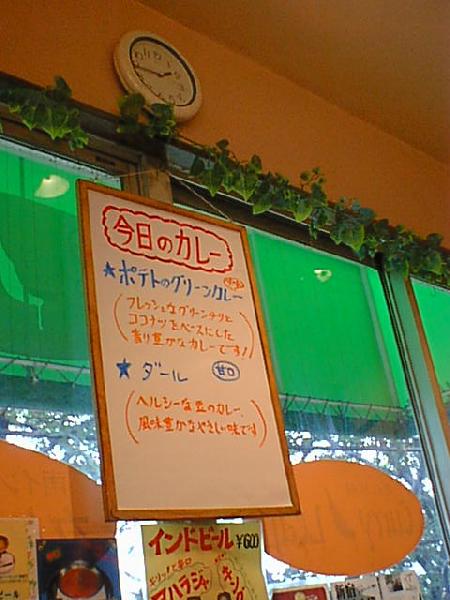 今日のカレー
★ポテトのグリーンカレー
フレッシュなグリーンチリと
ココナツをベースにした
香り豊かなカレーです!
★ダール 甘口
ヘルシーな豆のカレー、
風味豊かなやさしい味です
インドビール ¥600
ピリッと辛口
マハラジャ
キング